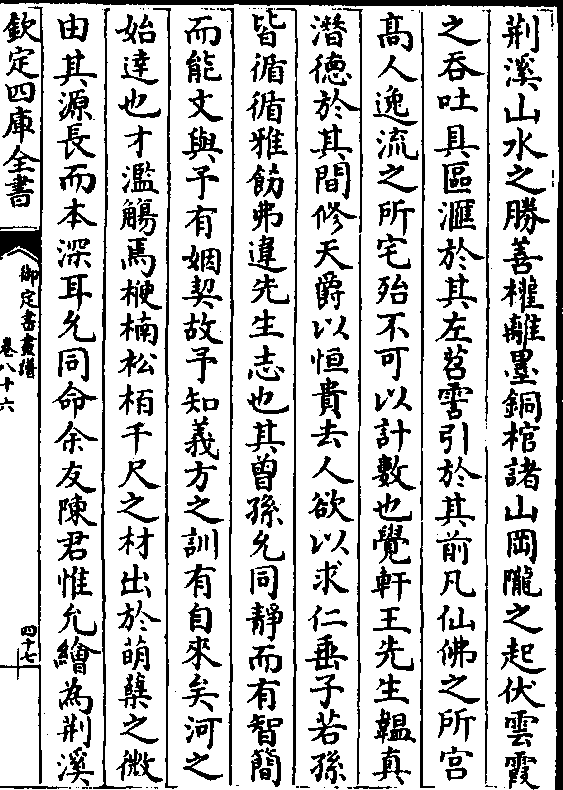 荆溪山水之勝善權離墨銅棺諸山岡隴之起伏雲霞
之吞吐具區滙於其左苕霅引於其前凡仙佛之所宮
髙人逸流之所宅殆不可以計數也覺軒王先生韞真
潛德於其間修天爵以恒貴去人欲以求仁垂子若孫
皆循循雅飭弗違先生志也其曾孫允同靜而有智簡
而能文與予有姻契故予知義方之訓有自來矣河之
始達也才濫觴焉楩楠松栢千尺之材出於萌蘖之微
由其源長而本深耳允同命余友陳君惟允繪為荆溪
欽定四庫全書
御定書畫譜
卷八十六
四十七